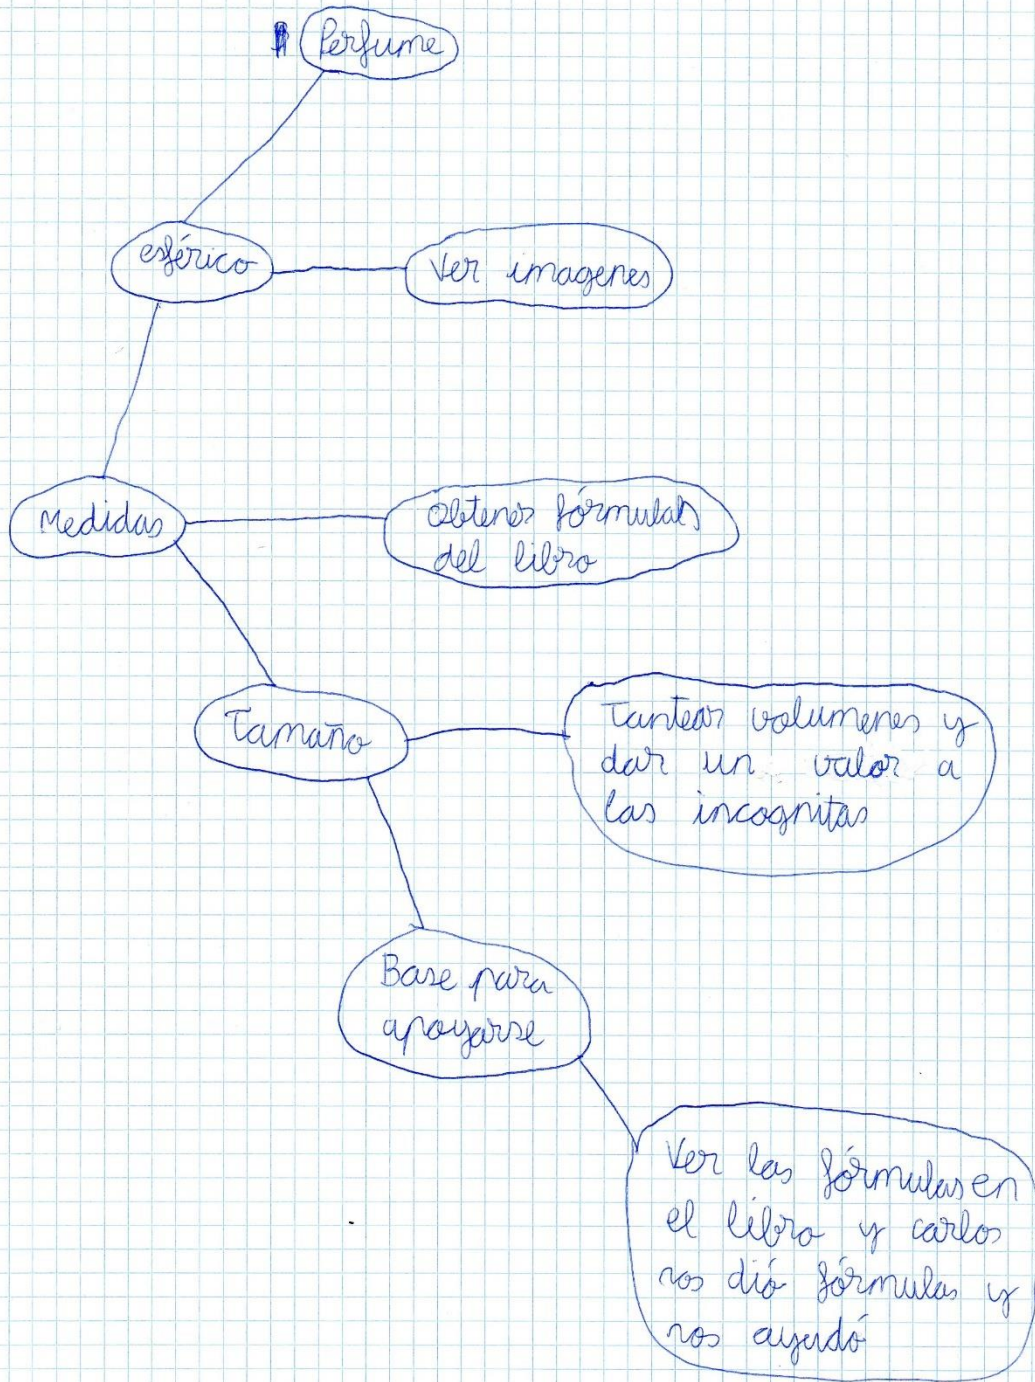 Perfume
esférico
Ver imagenes
Medidas
Obtener fórmulas
del libro
Tamaño
Tantear volumenes y
dar un valor a
las incognitas
Base para
apoyarse
Ver las fórmulas en
el libro y carlos
nos dió fórmulas y
nos ayudó